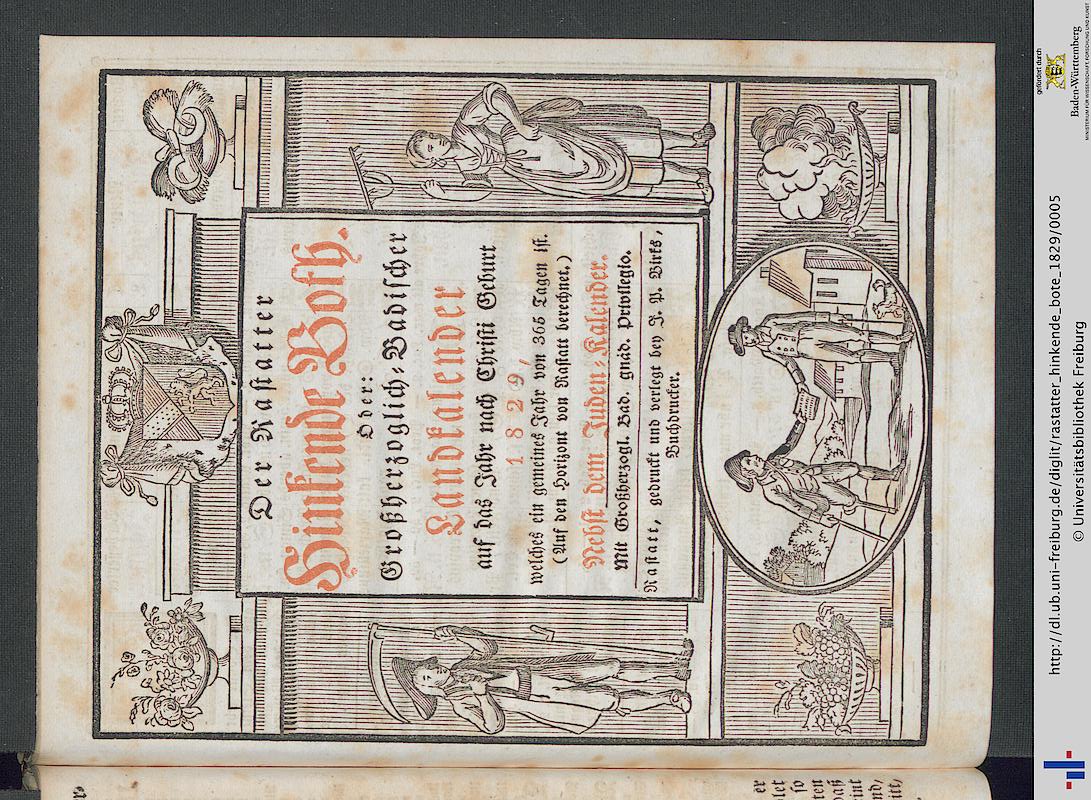 Der Rastatter
Hinkende Both.
Oder:
Großherzoglich-Badischer
Landkalender
auf das Jahr nach Christi Geburt
1829,
welches ein gemeines Jahr von 365 Tagen ist.
(Auf den Horizont von Rastatt berechnet.)
Nebst dem Juden-Kalender.
Mit Großherzogl. Bad. gnäd. Privilegio.
Rastatt, gedruckt und verlegt bey J. P. Birks,
Buchdrucker.
er
let
so
ten
daß
eint
nd,
itt,
http://dl.ub.uni-freiburg.de/diglit/rastatter_hinkende_bote_1829/0005
© Universitätsbibliothek Freiburg
gefördert durch
Baden-Württemberg
MINISTERIUM FÜR WISSENSCHAFT, FORSCHUNG UND KUNST